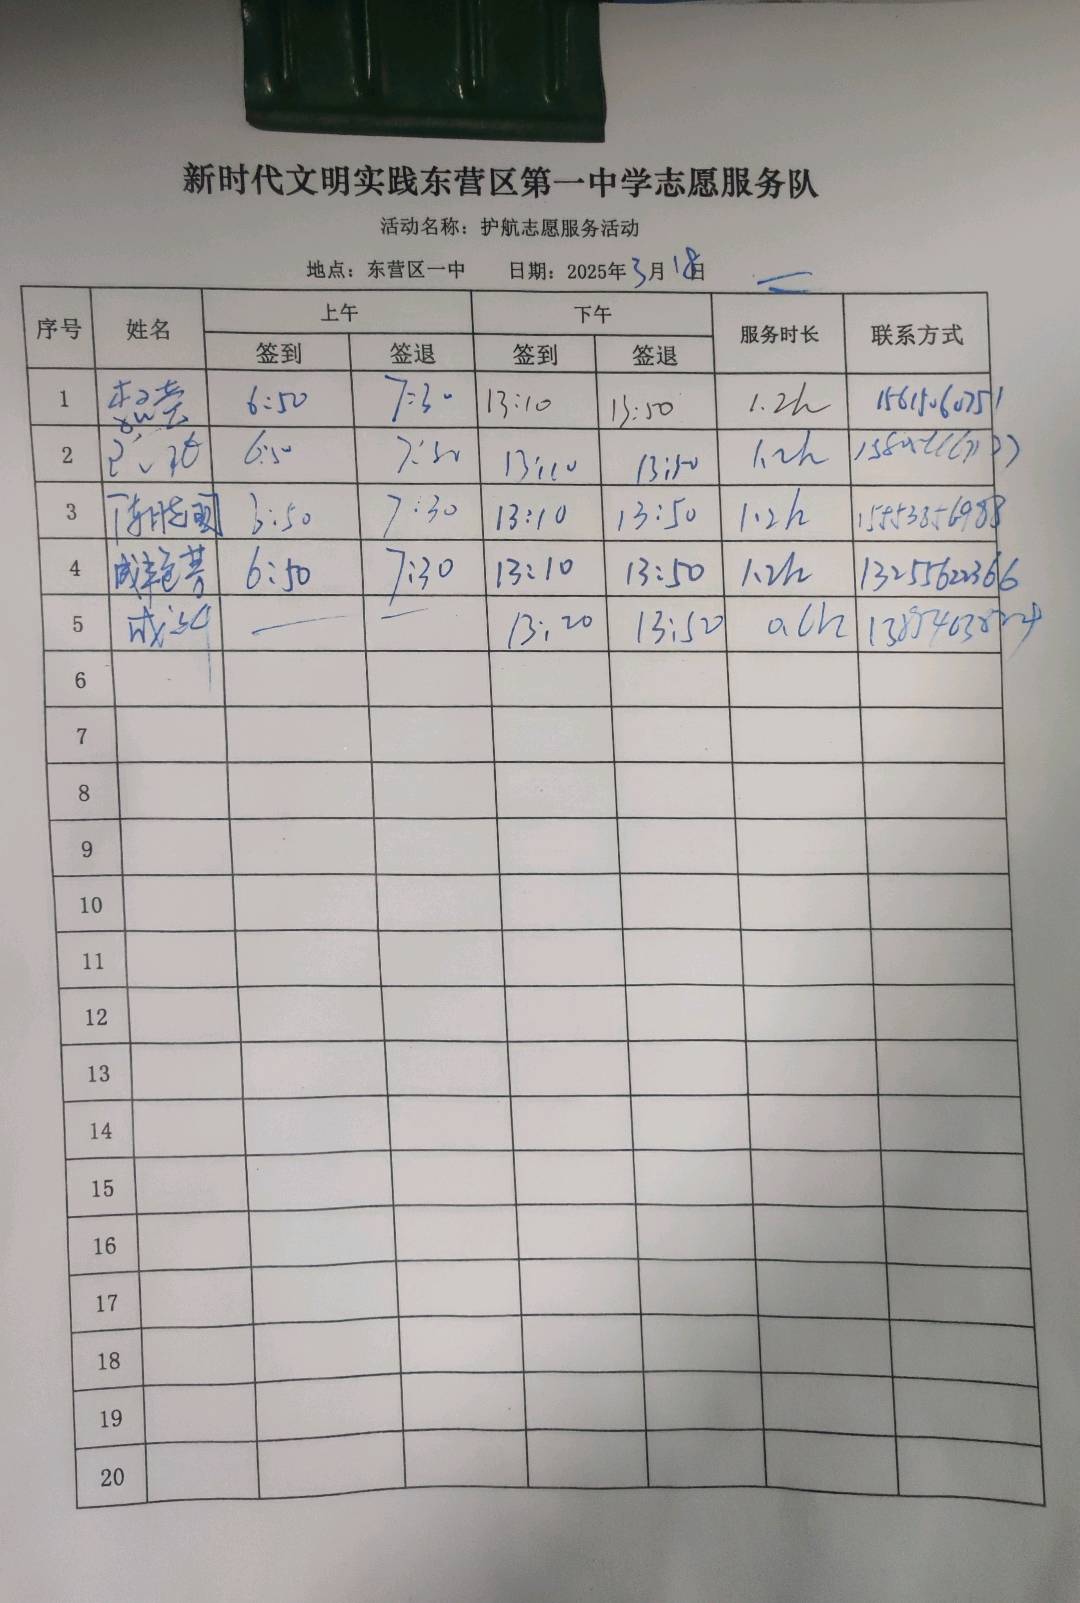 新时代文明实践东营区第一中学志愿服务队
活动名称：护航志愿服务活动
地点：东营区一中 日期：2025年3月18日
序号 姓名 上午 下午 服务时长 联系方式
签到 签退 签到 签退
1 6:50 7:30 13:10 13:50 1.2h 15615060751
2 6:50 7:30 13:10 13:50 1.2h
3 陈胜国 6:50 7:30 13:10 13:50 1.2h 15553856988
4 6:50 7:30 13:10 13:50 1.2h 13255622366
5 — — 13:20 13:50 0.6h
6
7
8
9
10
11
12
13
14
15
16
17
18
19
20